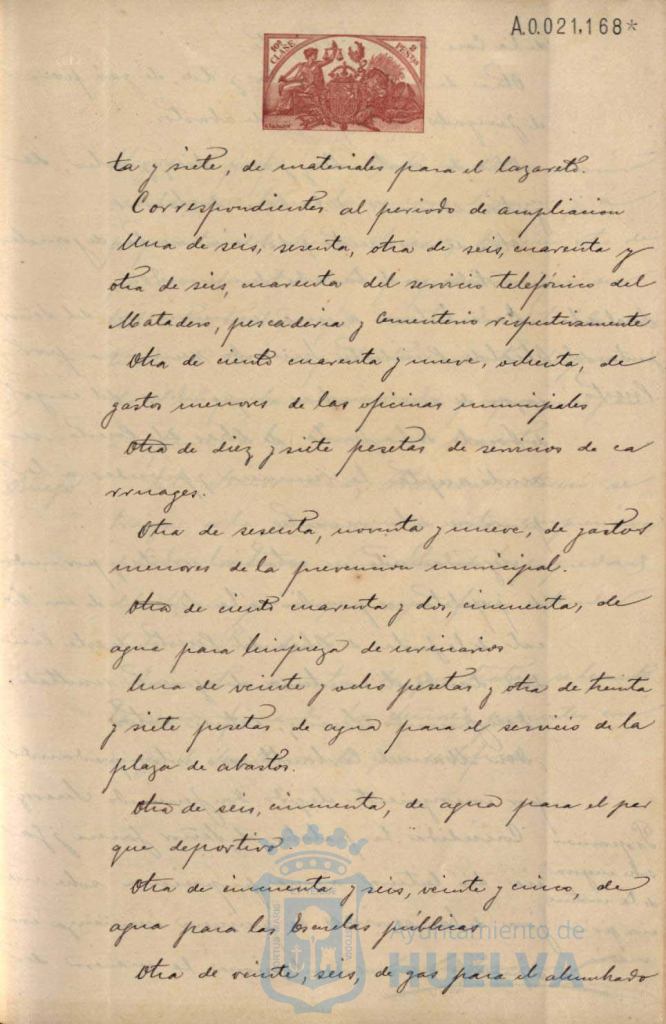 A.0.021,168*
10ª CLASE
2 PESETAS
ta y siete, de materiales para el lazareto.
Correspondientes al periodo de ampliacion
Una de seis, sesenta, otra de seis, cuarenta y
otra de seis, cuarenta del servicio telefónico del
Matadero, pescaderia y Cementerio respectivamente
Otra de ciento cuarenta y nueve, ochenta, de
gastos menores de las oficinas municipales
Otra de diez y siete pesetas de servicios de ca
rruages.
Otra de sesenta, noventa y nueve, de gastos
menores de la prevencion municipal.
Otra de ciento cuarenta y dos, cincuenta, de
agua para limpieza de urinarios
Una de veinte y ocho pesetas y otra de treinta
y siete pesetas de agua para el servicio de la
plaza de abastos.
Otra de seis, cincuenta, de agua para el par
que deportivo.
Otra de cincuenta y seis, veinte y cinco, de
agua para las Escuelas públicas
Otra de veinte, seis, de gas para el alumbrado
Ayuntamiento de
HUELVA